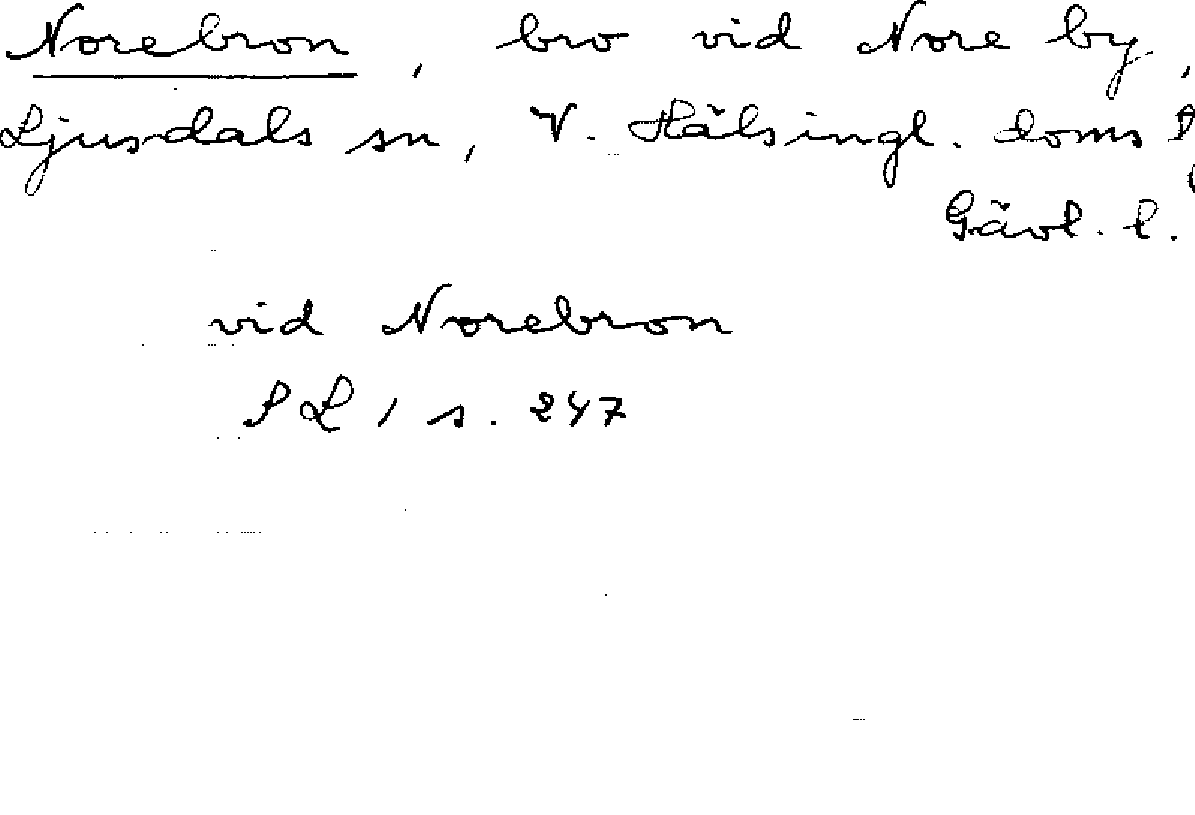 Norebron, bro vid Nore by,
Ljusdals sn, V. Hälsingl. doms
Gävl. l.
vid Norebron
SL, s. 247